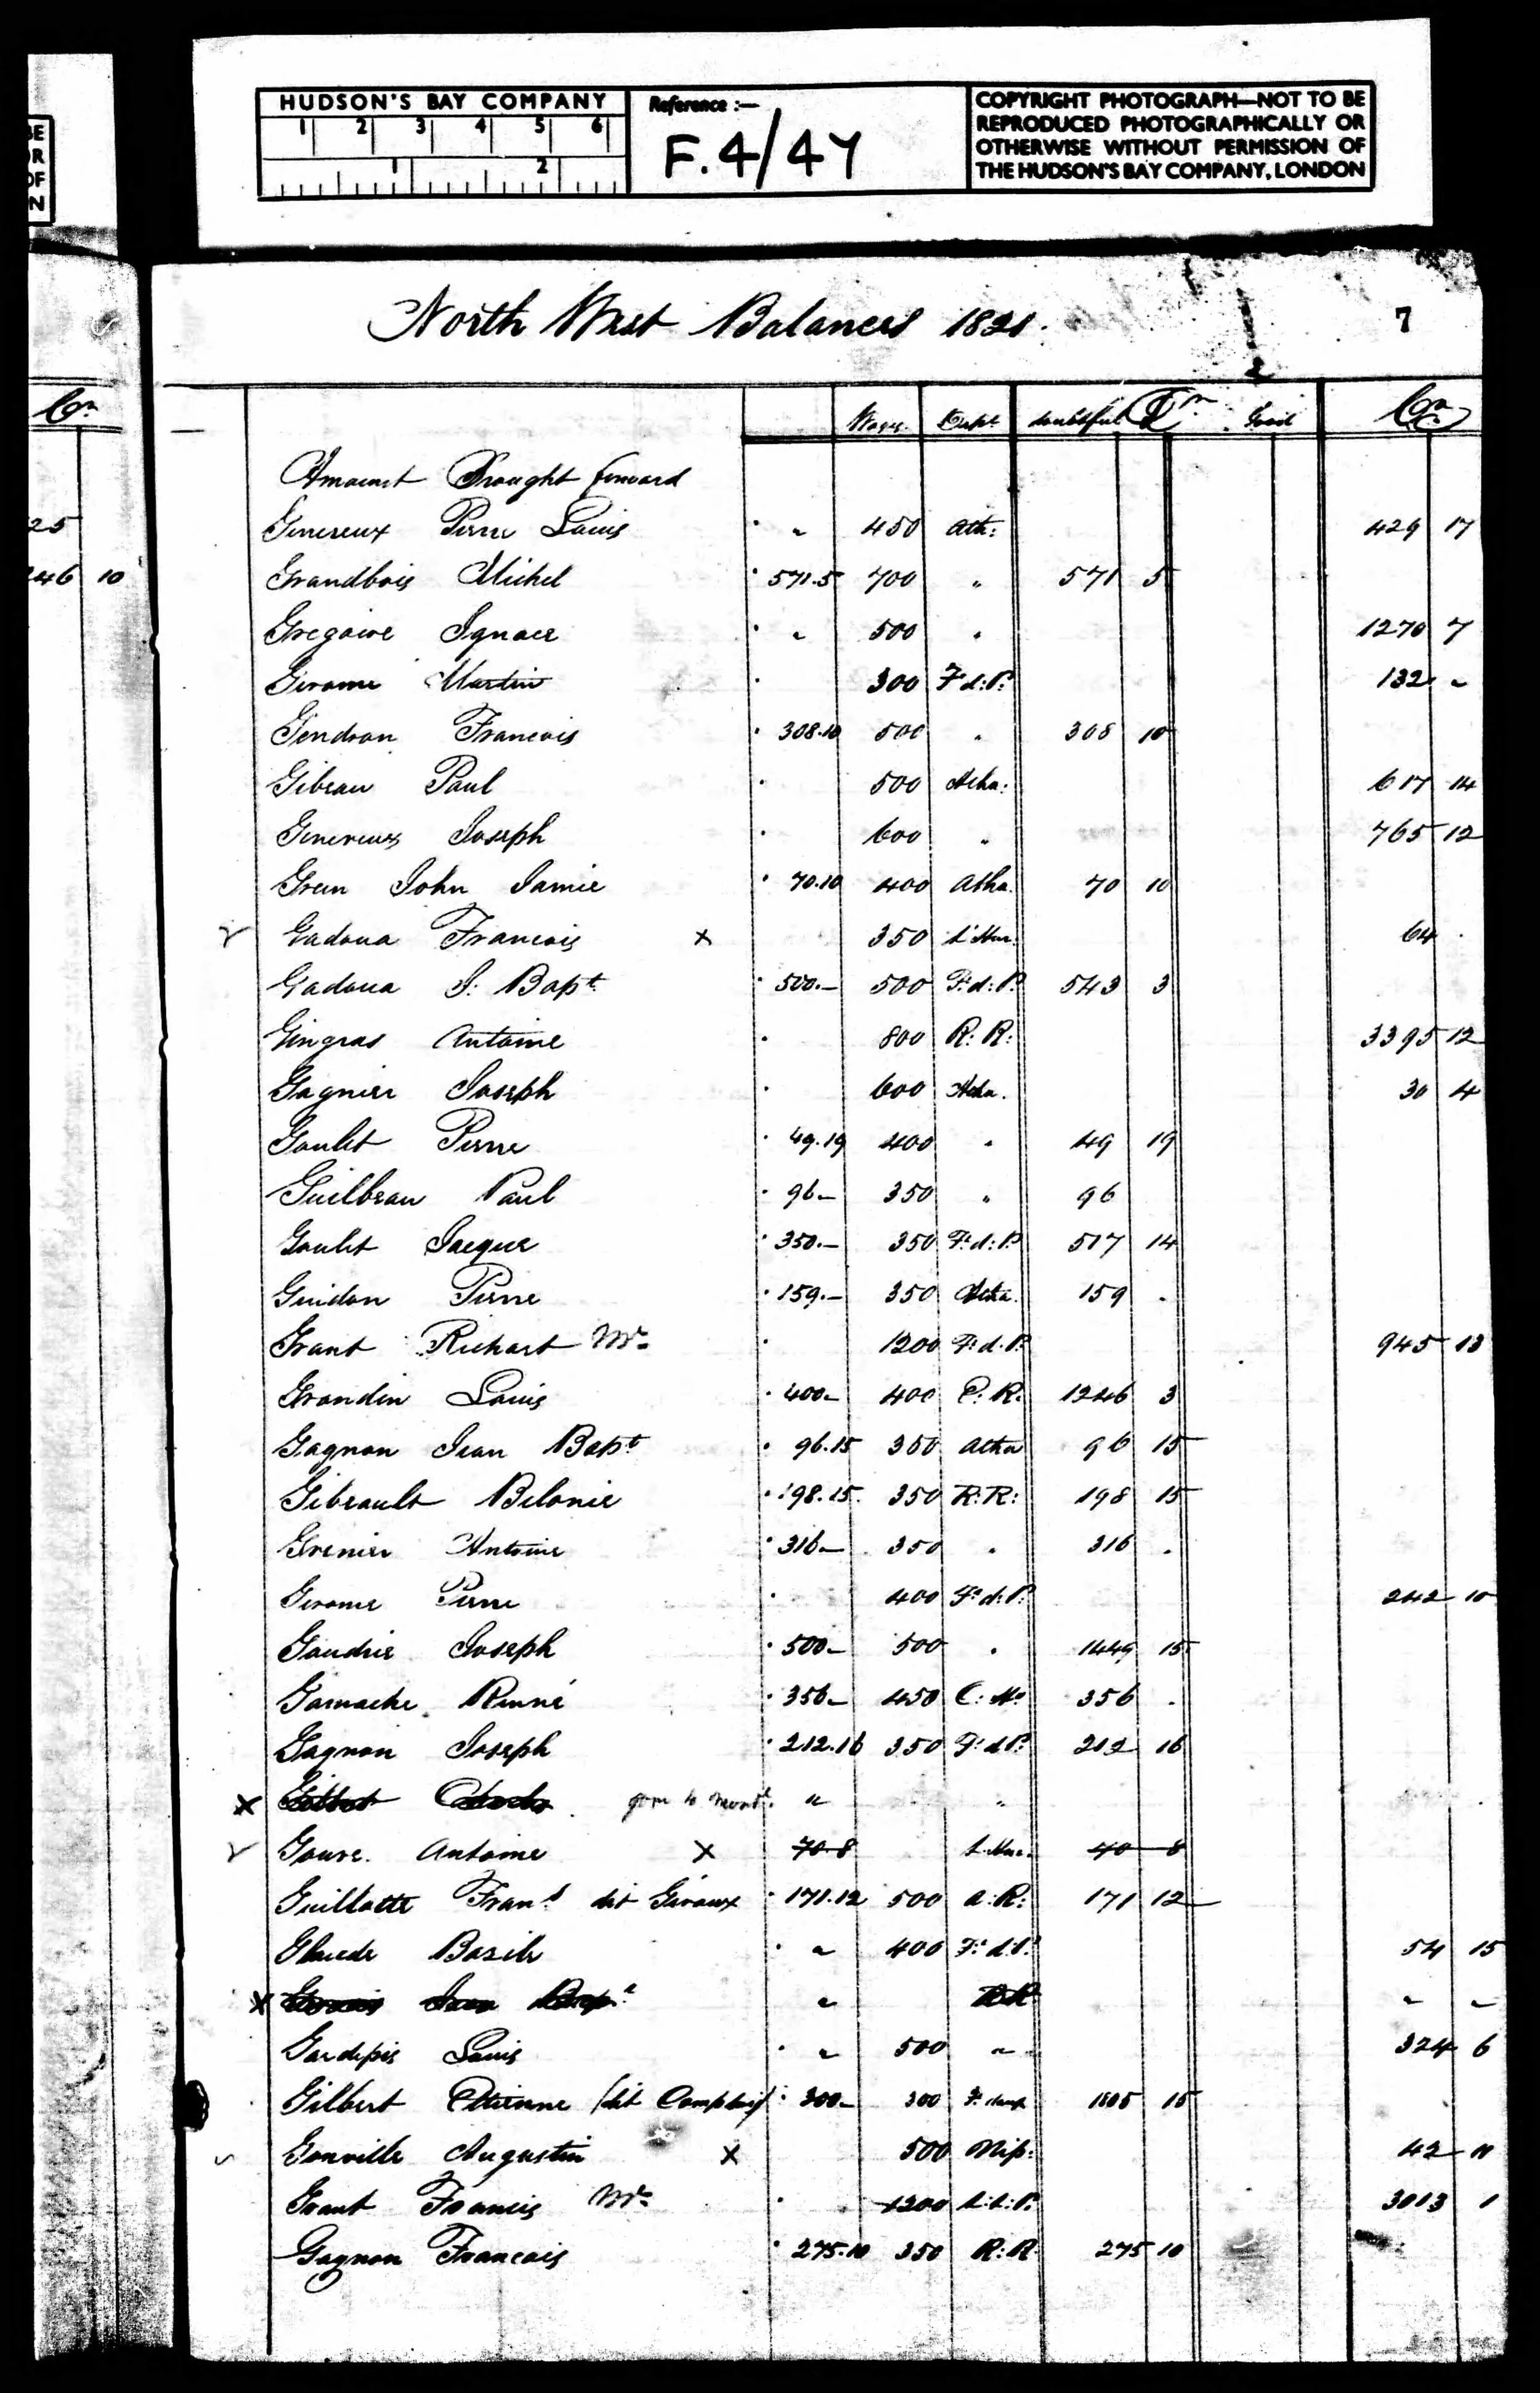 HUDSON'S BAY COMPANY
1 2 3 4 5 6
1 2
Reference :—
F.4/47
COPYRIGHT PHOTOGRAPH—NOT TO BE
REPRODUCED PHOTOGRAPHICALLY OR
OTHERWISE WITHOUT PERMISSION OF
THE HUDSON'S BAY COMPANY, LONDON
North West Balances 1821. 7
Wages Dept doubtful Dr Good Cr
Amount Brought forward
Genereux Pierre Louis " 450 Ath: 429 17
Grandbois Michel 571.5 700 " 571 5
Gregoire Ignace " 500 " 1270 7
Gerome Martin 300 F.d:P: 132 "
Gendron Francois 308.10 500 " 308 10
Gibeau Paul 500 Atha: 617 14
Genereux Joseph 600 " 765 12
Green John Jamie 70.10 400 Atha. 70 10
Gadoua Francois x 350 L'Hur. 64
Gadoua J: Bapt. 500.— 500 F:d:P: 543 3
Gingras Antoine 800 R:R: 3395 12
Gagnier Joseph 600 Atha. 30 4
Goulet Pierre 49.19 400 " 49 19
Guilbeau Paul 96— 350 " 96
Goulet Jacque 350.— 350 F:d:P: 517 14
Guidon Pierre 159.— 350 Atha. 159
Grant Richart Mr. 1200 F:d.P: 945 13
Grandin Louis 400— 400 E:R: 1246 3
Gagnon Jean Bapt 96.15 350 Atha 96 15
Gibeault Belonie 198.15. 350 R:R: 198 15
Grenier Antoine 316— 350 " 316
Gerome Pierre 400 F:d:P: 242 10
Gaudrie Joseph 500— 500 " 1449 15
Gamache Renné 356— 450 356
Gagnon Joseph 212.16 350 F:d:P: 212 16
x gone to Mont. "
Goure. Antoine x 70.8 L.Hur. 40 8
Guillotte Frans dit Giroux 171.12 500 A:R: 171 12
Glaude Basile " 400 F:d:P: 54 15
x " " "
Gardipis Louis " 500 " 324 6
Gilbert Etienne (dit 300— 300 1805 15
Gonville Augustin x 500 Nip: 42 11
Grant Francis Mr. 1200 L:L:P: 3013 1
Gagnon Francois 275.10 350 R:R 275 10
Cr
25
246 10